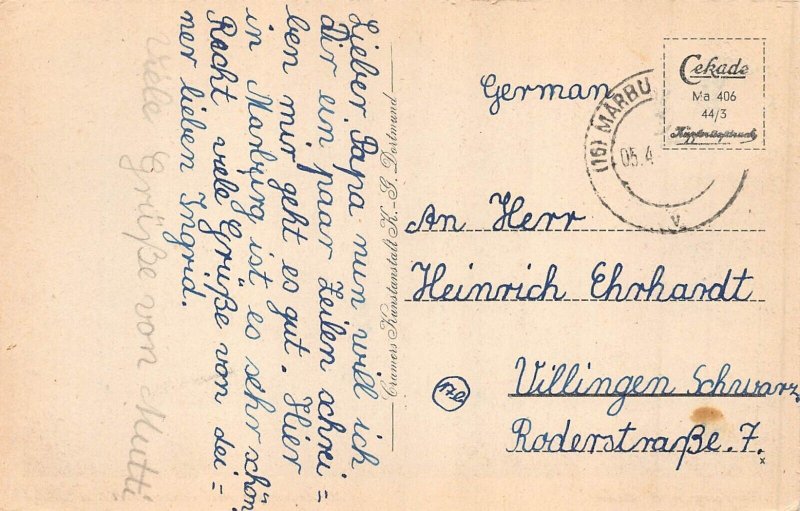 Lieber Papa nun will ich
dir ein paar Zeilen schrei=
ben mir geht es gut. Hier
in Marburg ist es sehr schön
Recht viele Grüße von dei=
ner lieben Ingrid.
Viele Grüße von Mutti
Cramers Kunstanstalt K.-G. Dortmund
German
(16) MARBU
05.4
V
Cekade
Ma 406
44/3
Kupfertiefdruck
An Herr
Heinrich Ehrhardt
17b
Villingen Schwarz
Roderstraße. 7.